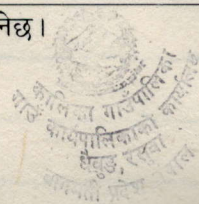 नेछ।
कालिका गाउँपालिका
गाउँ कार्यपालिकाको कार्यालय
धैबुङ, रसुवा
बागमती प्रदेश, नेपाल